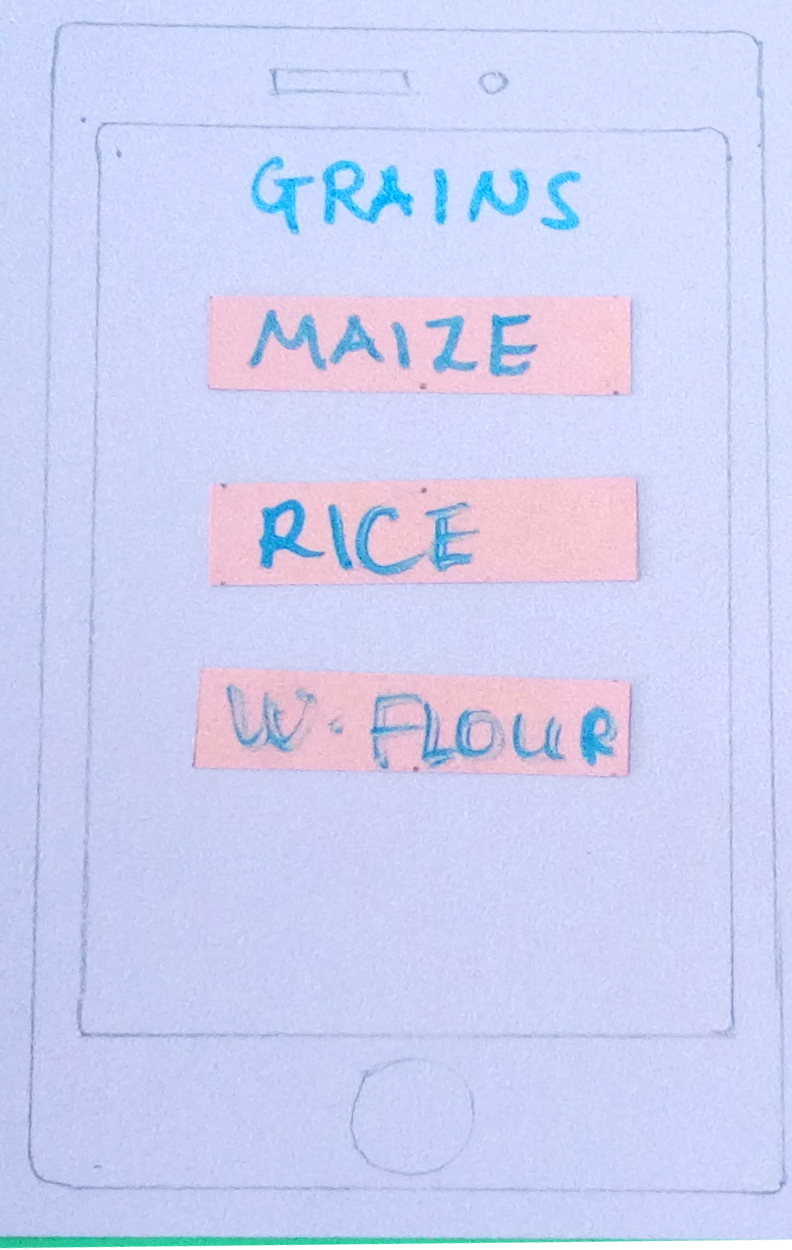 GRAINS
MAIZE
RICE
W. FLOUR